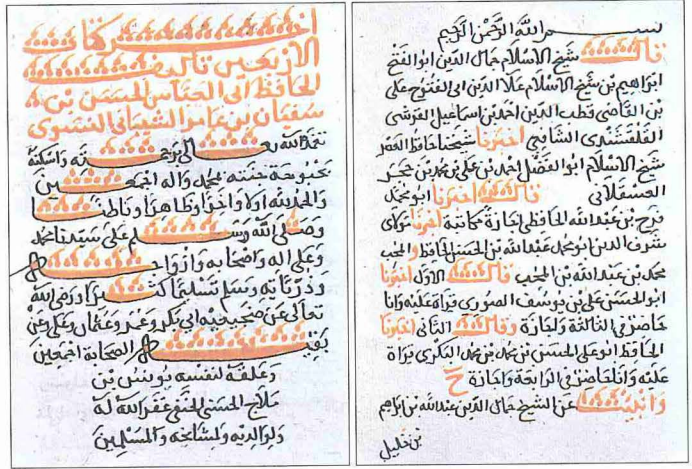 بسم الله الرحمن الرحيم
قال شيخ الاسلام جمال الدين ابو الفتح
ابراهيم بن شيخ الاسلام علا الدين ابى الفتوح على
بن القاضى قطب الدين احمد بن اسماعيل القرشى
القلقشندى الشافعى اخبرنا شيخنا حافظ العصر
شيخ الاسلام ابو الفضل احمد بن على بن محمد بن حجر
العسقلانى قال اخبرنا ابو محمد
فرج بن عبد الله الحافظى اجازة مكاتبة اخبرنا مولاى
شرف الدين ابو محمد عبد الله بن الحسن الحافظ و المحب
محمد بن عبد الله بن المحب قال الاول اخبرنا
ابو الحسن على بن يوسف الصورى قراة عليه وانا
حاضر فى الثالثة واجازة وقال الثانى اخبرنا
الحافظ ابو على الحسن بن محمد بن محمد البكرى قراة
عليه وانا حاضر فى الرابعة واجازة ح
وانبئت عن الشيخ جمال الدين عبد الله بن ابراهيم
بن خليل
اخر كتاب
الاربعين تاليف
الحافظ ابى العباس الحسن بن
سفيان بن عامر الشيبانى النسوى
تغمده الله تعالى برحمته واسكنه
بحبوحة جنته بمحمد واله اجمعين
والحمد لله اولا واخرا وظاهرا وباطنا
وصلى الله وسلم على سيدنا محمد
وعلى اله واصحابه وازواجه
وذرياته وسلم تسليما كثيرا ورضى الله
تعالى عن صحبه ابى بكر وعمر وعثمان وعلى وعن
بقية الصحابة اجمعين
وعلقه لنفسه يونس بن
ملاج الحسنى الحنفى غفر الله له
ولوالديه ولمشايخه والمسلمين